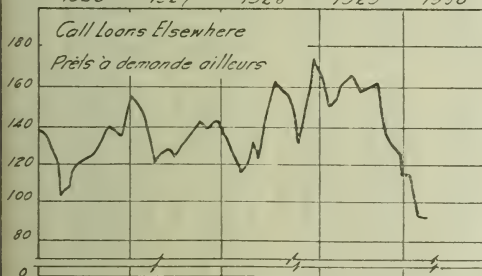 Call Loans Elsewhere
Prêts à demande ailleurs
180
160
140
120
100
80
0